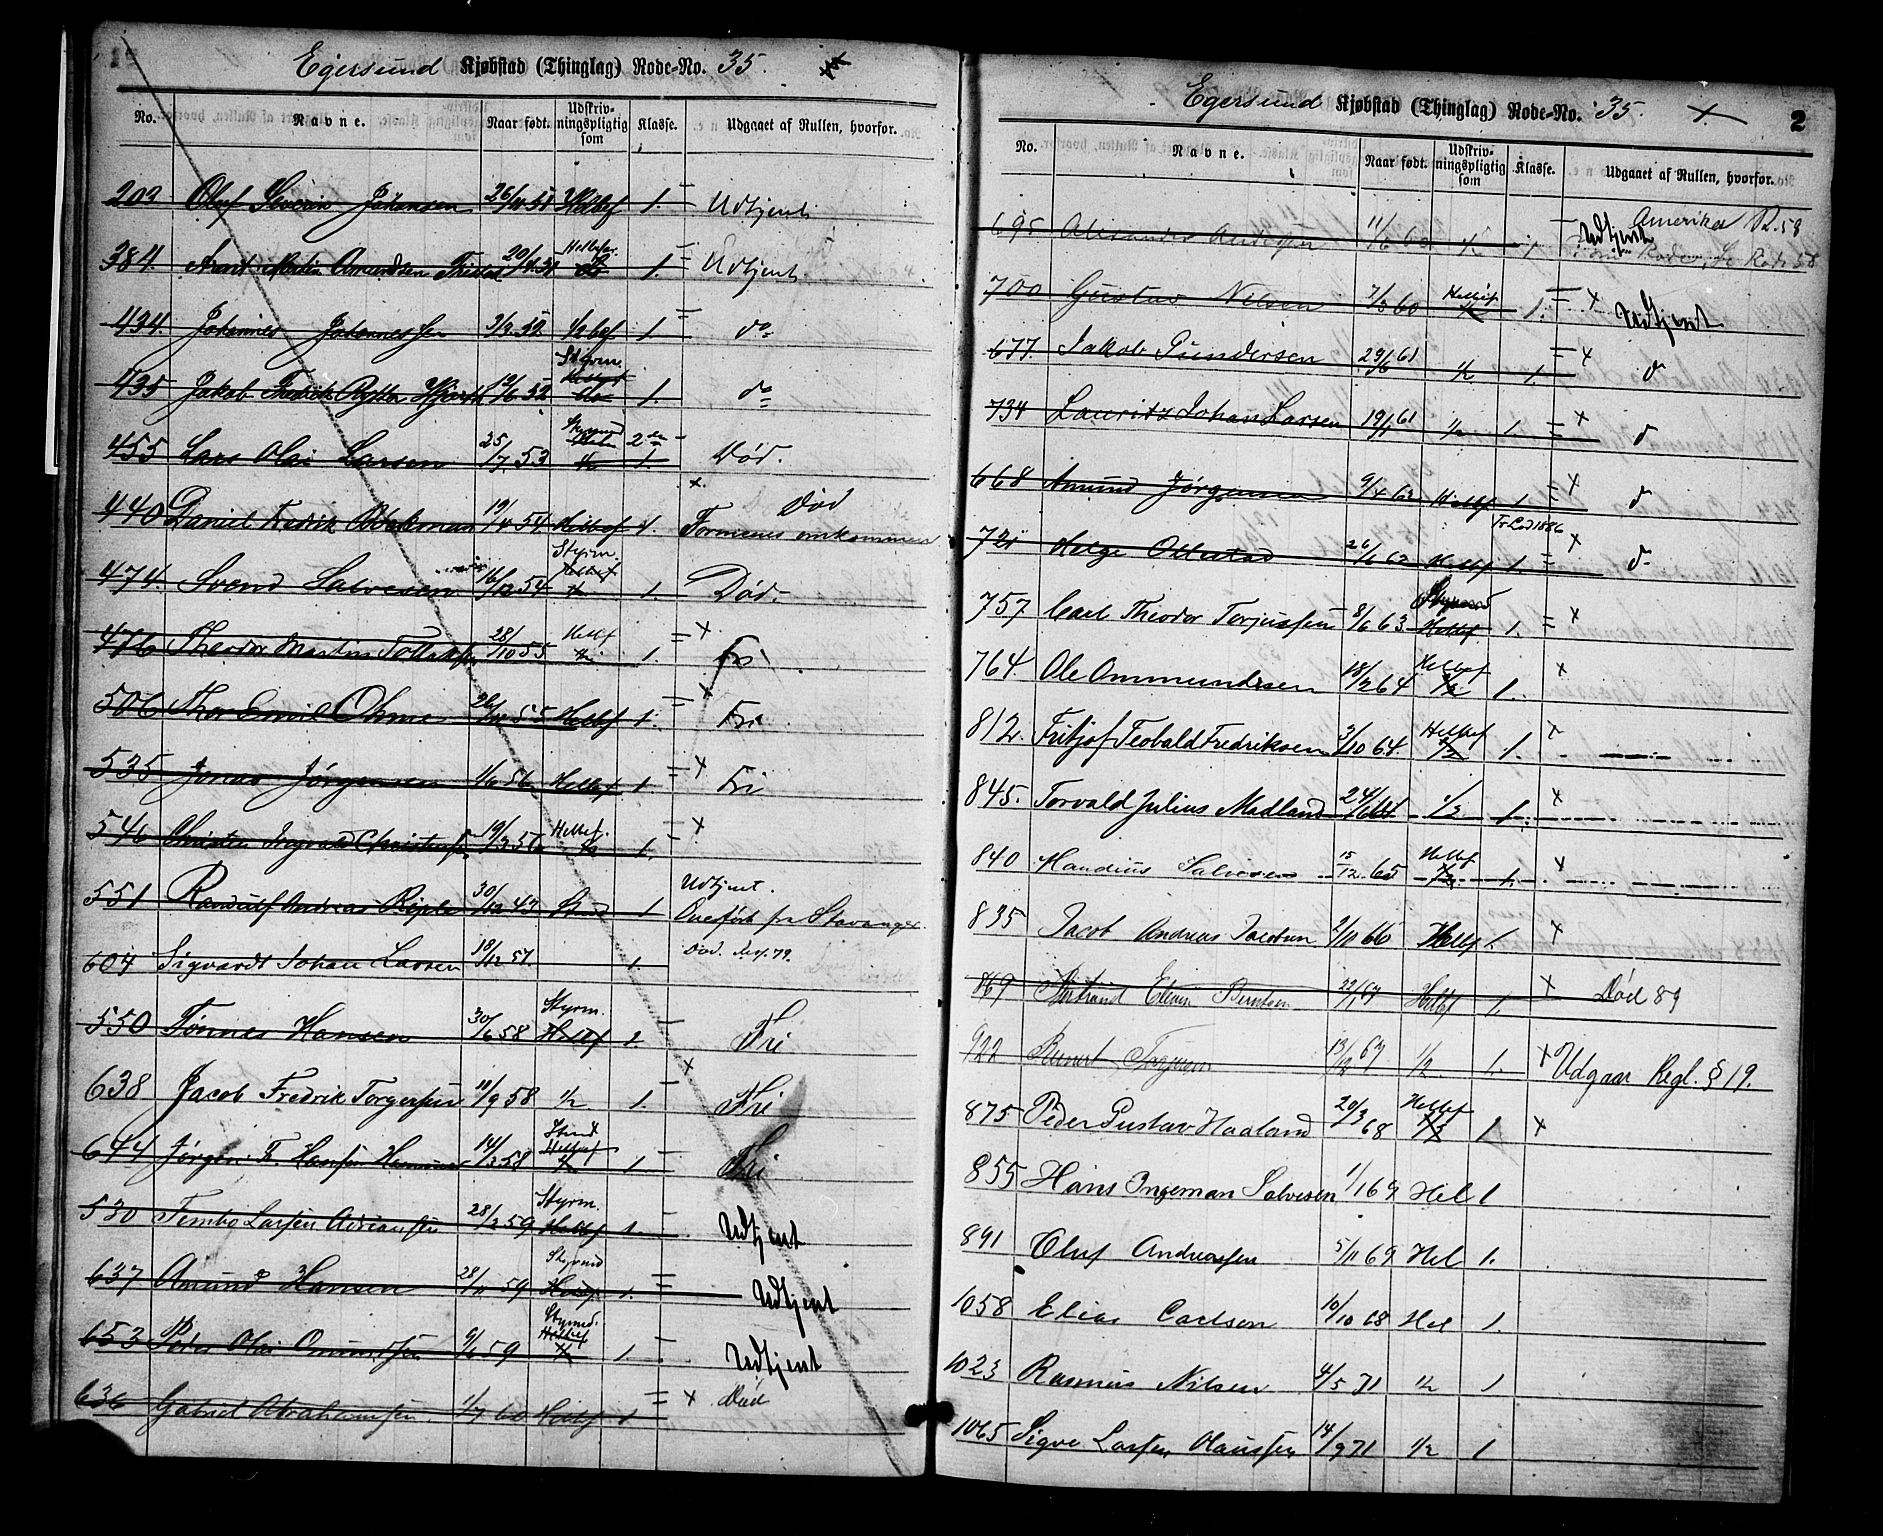 Egersund Kjøbstad (Thinglag) Rode-No. 35.
No. Navne. Naar født. Udskrivningspligtig som Klasse. Udgaaet af Rullen, hvorfor.
202 Oluf Johansen 26/11 51 Helbef 1. Udtjent
384. Arent Martin Amundsen 1. Udtjent
434. Johannes Johannessen 3/2 52 1/2 bef 1 do
435 Jakob Fredrik Hjorth 52 Styrm. 1. do
455 Lars Olai Larsen 25/7 53 1/2 2den 1. Død.
440 Daniel Fredrik 19/11 54 Helbef 1. Død
Formenes omkommen
474. Svend Salvesen 16/12 54 Styrm. Helbef 1. Død.
476 Theodor Martin 28/10 55 Helbef 1. Fri
506 Thor Emil Ohme 55 Helbef 1. Fri
535 Jonas Jørgensen 1/6 56 Helbef 1 Fri
546 Ingvald Christensen 19/3 56 Helbef. 1.
551 Randulf Andreas 30/12 43 1 Udtjent.
Overført fra Stavanger
604 Sigvardt Johan Larsen 18/12 57. 1. Død.
550 Tønnes Hansen 30/6 58 Styrm. Helbef 1. Fri
638 Jacob Fredrik Torgersen 11/9 58 1/2 1. Fri
644 Jørgen Hansen 14/3 58 Helbef 1. Fri
530 Larsen Adriansen 28/2 59 Styrm. Helbef 1. Udtjent
637 Amund Hansen 28/11 59 1. Udtjent
653 Peder Olai Omundsen 9/6 59 Helbef 1. Udtjent
636 Gabriel Abrahamsen 1/7 60 Helbef 1 x Død
Egersund Kjøbstad (Thinglag) Rode-No. 35. 2
No. Navne. Naar født. Udskrivningspligtig som Klasse. Udgaaet af Rullen, hvorfor.
695 Andersen 11/6 60 1/2 1 Udtjent Amerika R. 58
700 Gustav Nilsen 7/8 60 Helbef 1. x Udtjent
677. Jakob Gundersen 29/6 61 1/2 1. x d
734 Lauritz Johan Larsen 19/1 61 1/2 1. x d
668 Amund Jørgensen 9/4 62 Helbef 1. x d
721 Helge Ollestad 26/1 62 Helbef 1. x d
757 Carl Theodor Torjussen 8/6 63 Helbef 1. x
764. Ole Ommundsen 18/2 64 Helbef 1/2 1. x
812. Fritjof Teobald Fredriksen 3/10 64. Helbef 1/2 1. x
845. Torvald Julius Madland 24/1 64 1/2 1. x
840 Mandius Salvesen 15/12 65 Helbef 1/2 1. x
835 Jacob Andreas 2/10 66 Helbf 1. x
869 Bertrand Elias Berntsen 22/1 67 Helbf 1. x Død 89
922 13/12 67 1/2 1. x Udgaar Regl. § 19.
875 Peder Gustav Haaland 20/3 68 Helbef 1/2 1 x
855 Hans Ingeman Salvesen 1/1 69 Hel 1
891 Oluf Andreassen 5/11 69 Hel 1.
1058 Elias Carlsen 10/10 68 Hel 1.
1023 Rasmus Nilsen 4/5 71 1/2 1
1065 Sigve Larsen Olaussen 14/9 71 1/2 1